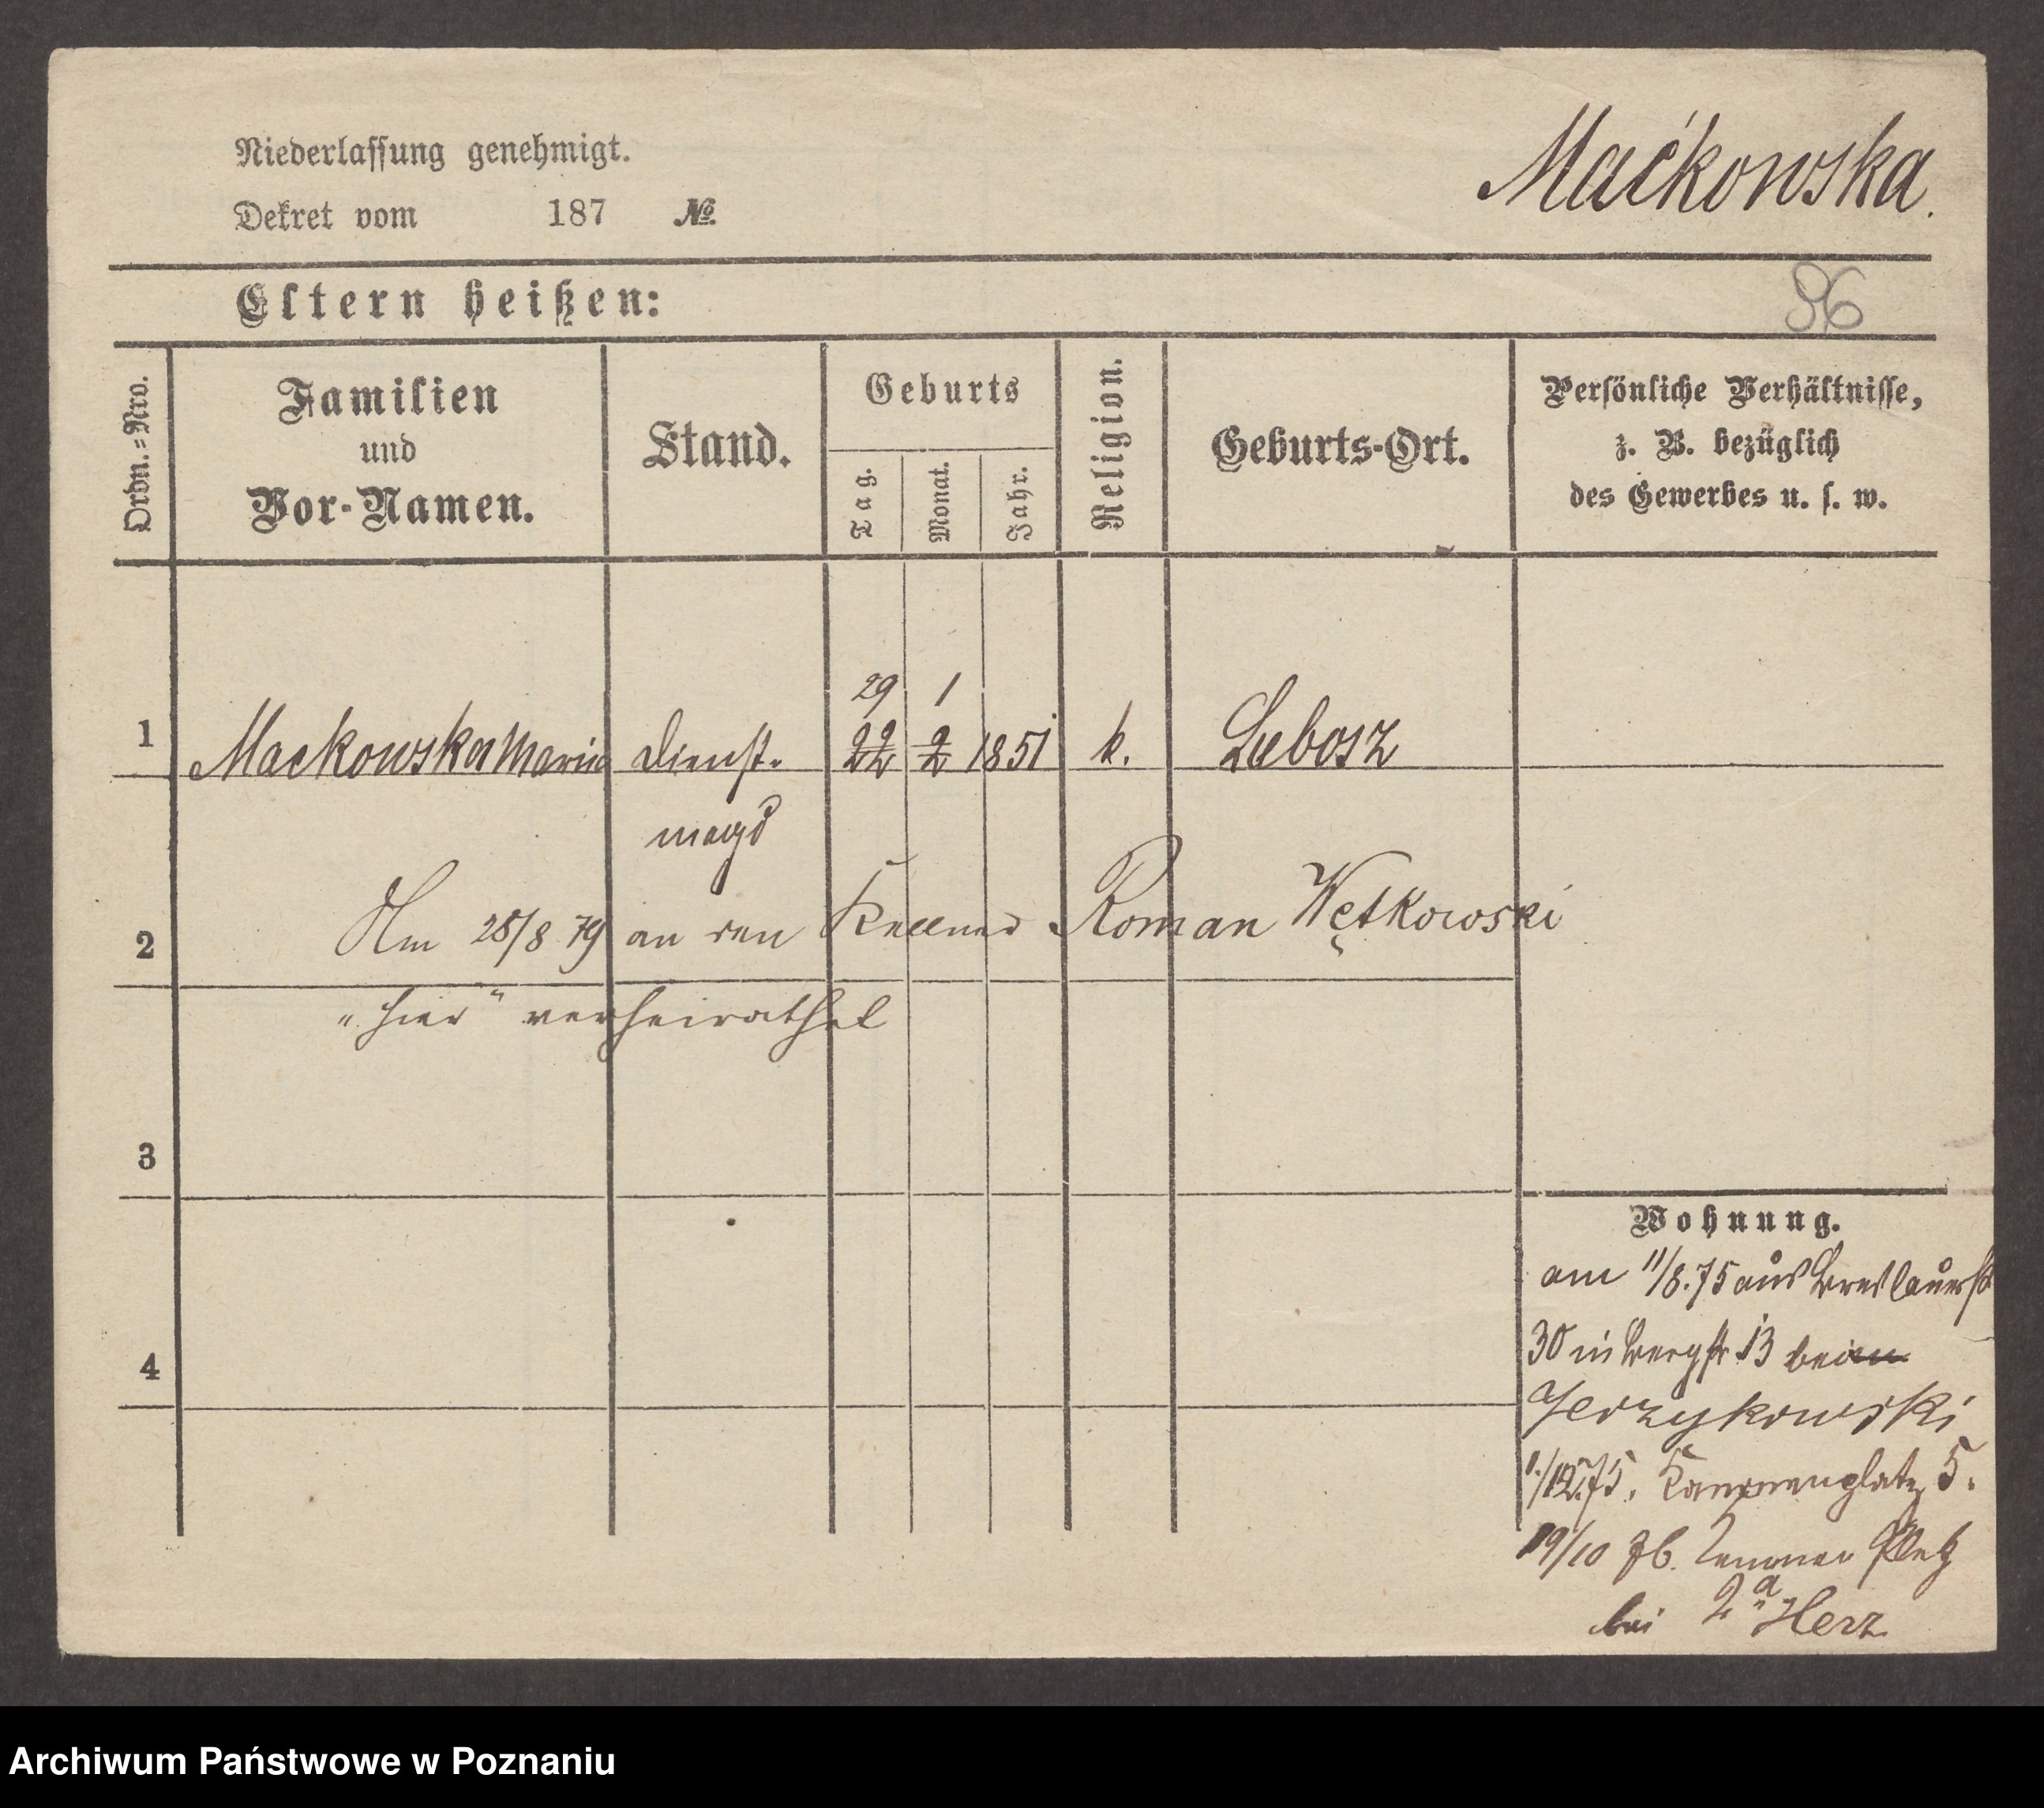 Niederlassung genehmigt.
Maćkowska.
Dekret vom 187 №
Eltern heißen:
96
Ordn.=Nro.
Familien
und
Vor-Namen.
Stand.
Geburts
Tag.
Monat.
Jahr.
Religion.
Geburts-Ort.
Persönliche Verhältnisse,
z. B. bezüglich
des Gewerbes u. s. w.
29 1
1 Mackowska Maria Dienst- 22 2 1851 k. Lubosz
magd
2 Am 28/8 79 an den Kellner Roman Wętkowski
"hier" verheirathet
3
Wohnung.
am 11/8.75 aus Breslauerstr
30 in Bergstr. 13 bei
4
Jerzykowski
1./12.75. Kanonenplatz 5.
19/10 76. Platz
bei 2a Herz